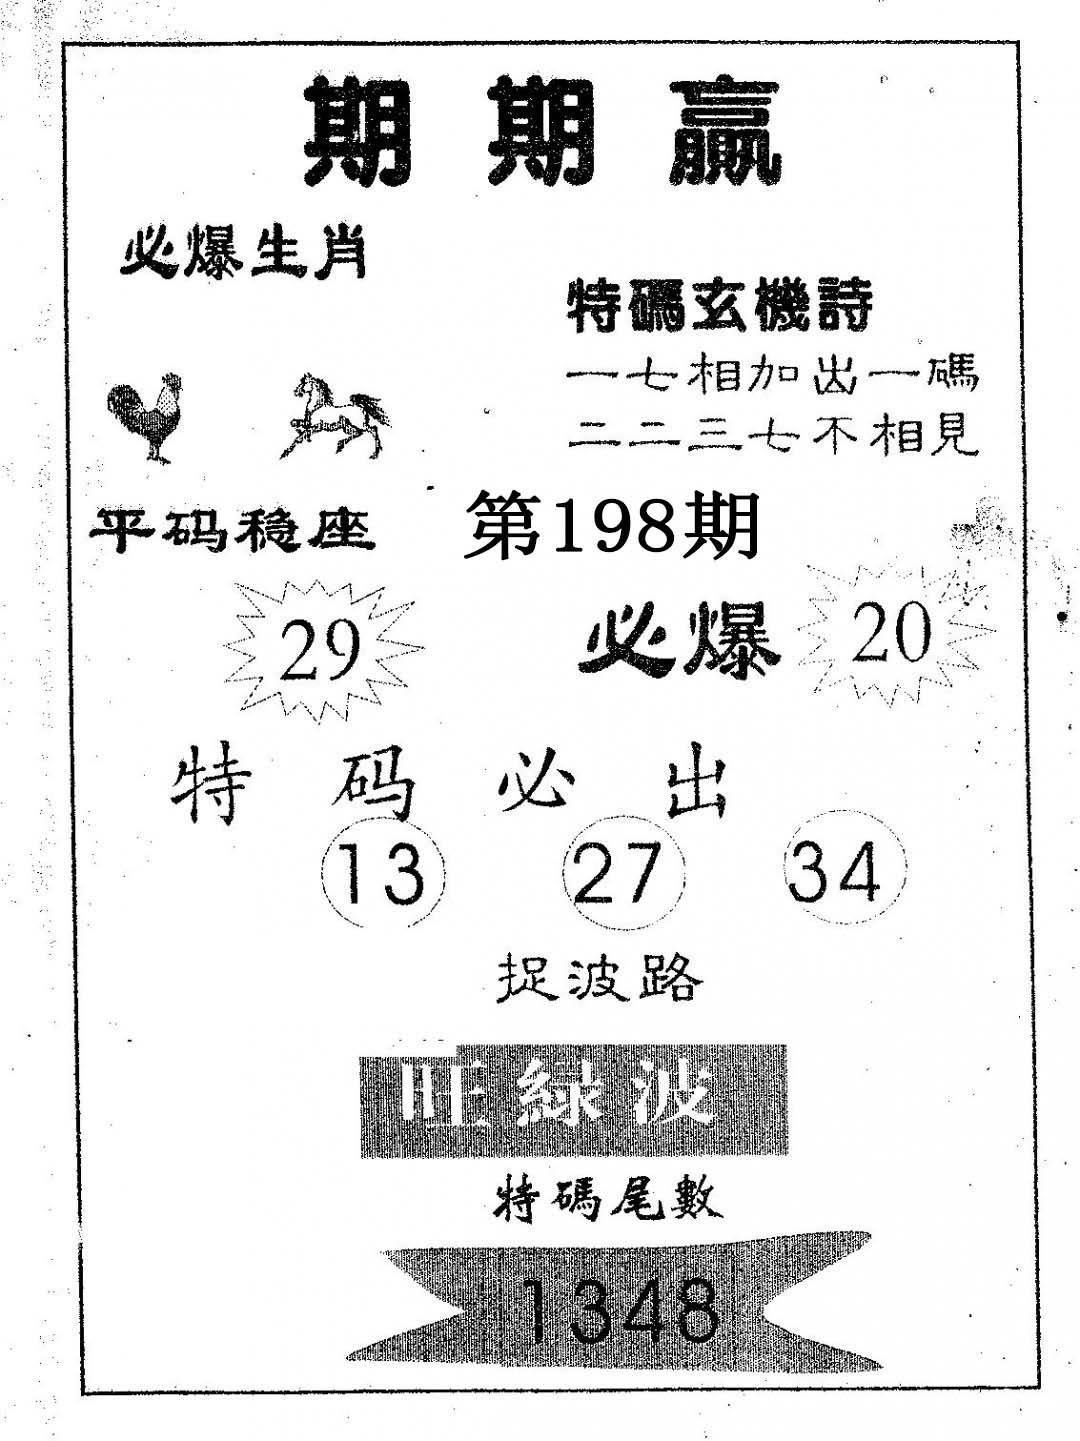 期期贏
必爆生肖
特碼玄機詩
一七相加出一碼
二二三七不相見
平码稳座
第198期
29
必爆 20
特码必出
13 27 34
捉波路
旺綠波
特碼尾數
1348